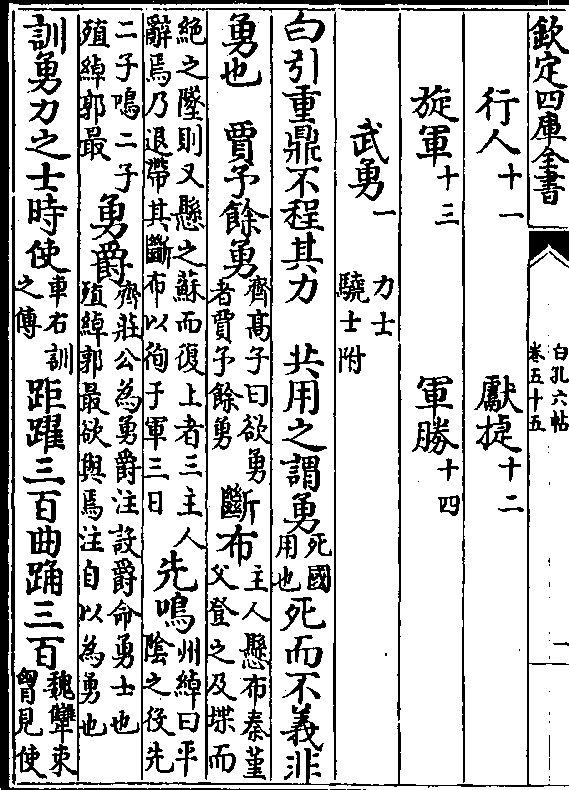 欽定四庫全書
白孔六帖
卷五十五
一
行人十一 獻捷十二
旋軍十三 軍勝十四
武勇一 力士驍士附
白引重鼎不程其力 共用之謂勇死國用也死而不義非
勇也 賈予餘勇齊髙子曰欲勇者賈予餘勇 斷布主人懸布秦堇父登之及堞而
絶之墜則又懸之蘇而復上者三主人辭焉乃退帶其斷布以徇于軍三日 先鳴州綽曰平隂之役先
二子鳴二子殖綽郭最 勇爵齊莊公為勇爵注設爵命勇士也殖綽郭最欲與焉注自以為勇也
訓勇力之士時使車右訓之傳 距躍三百曲踊三百魏犫束胷見使